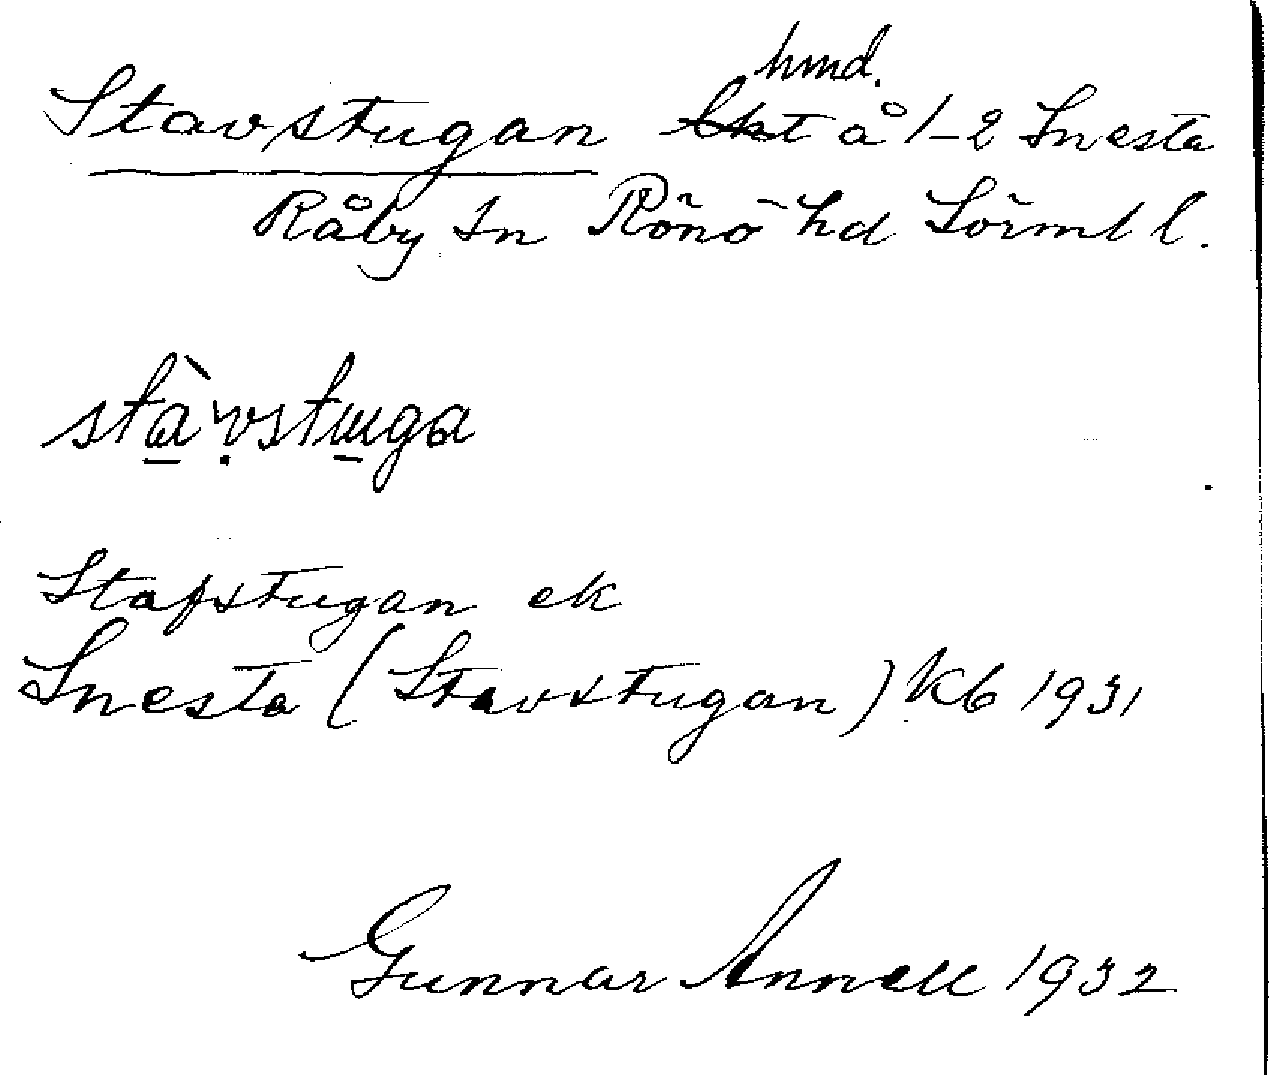 hmd.
Stavstugan Skt å 1-2 Snesta
Råby sn Rönö hd Sörml l.
stàvstuga
Stafstugan ek
Snesta (Stavstugan) Kb 1931
Gunnar Annell 1932